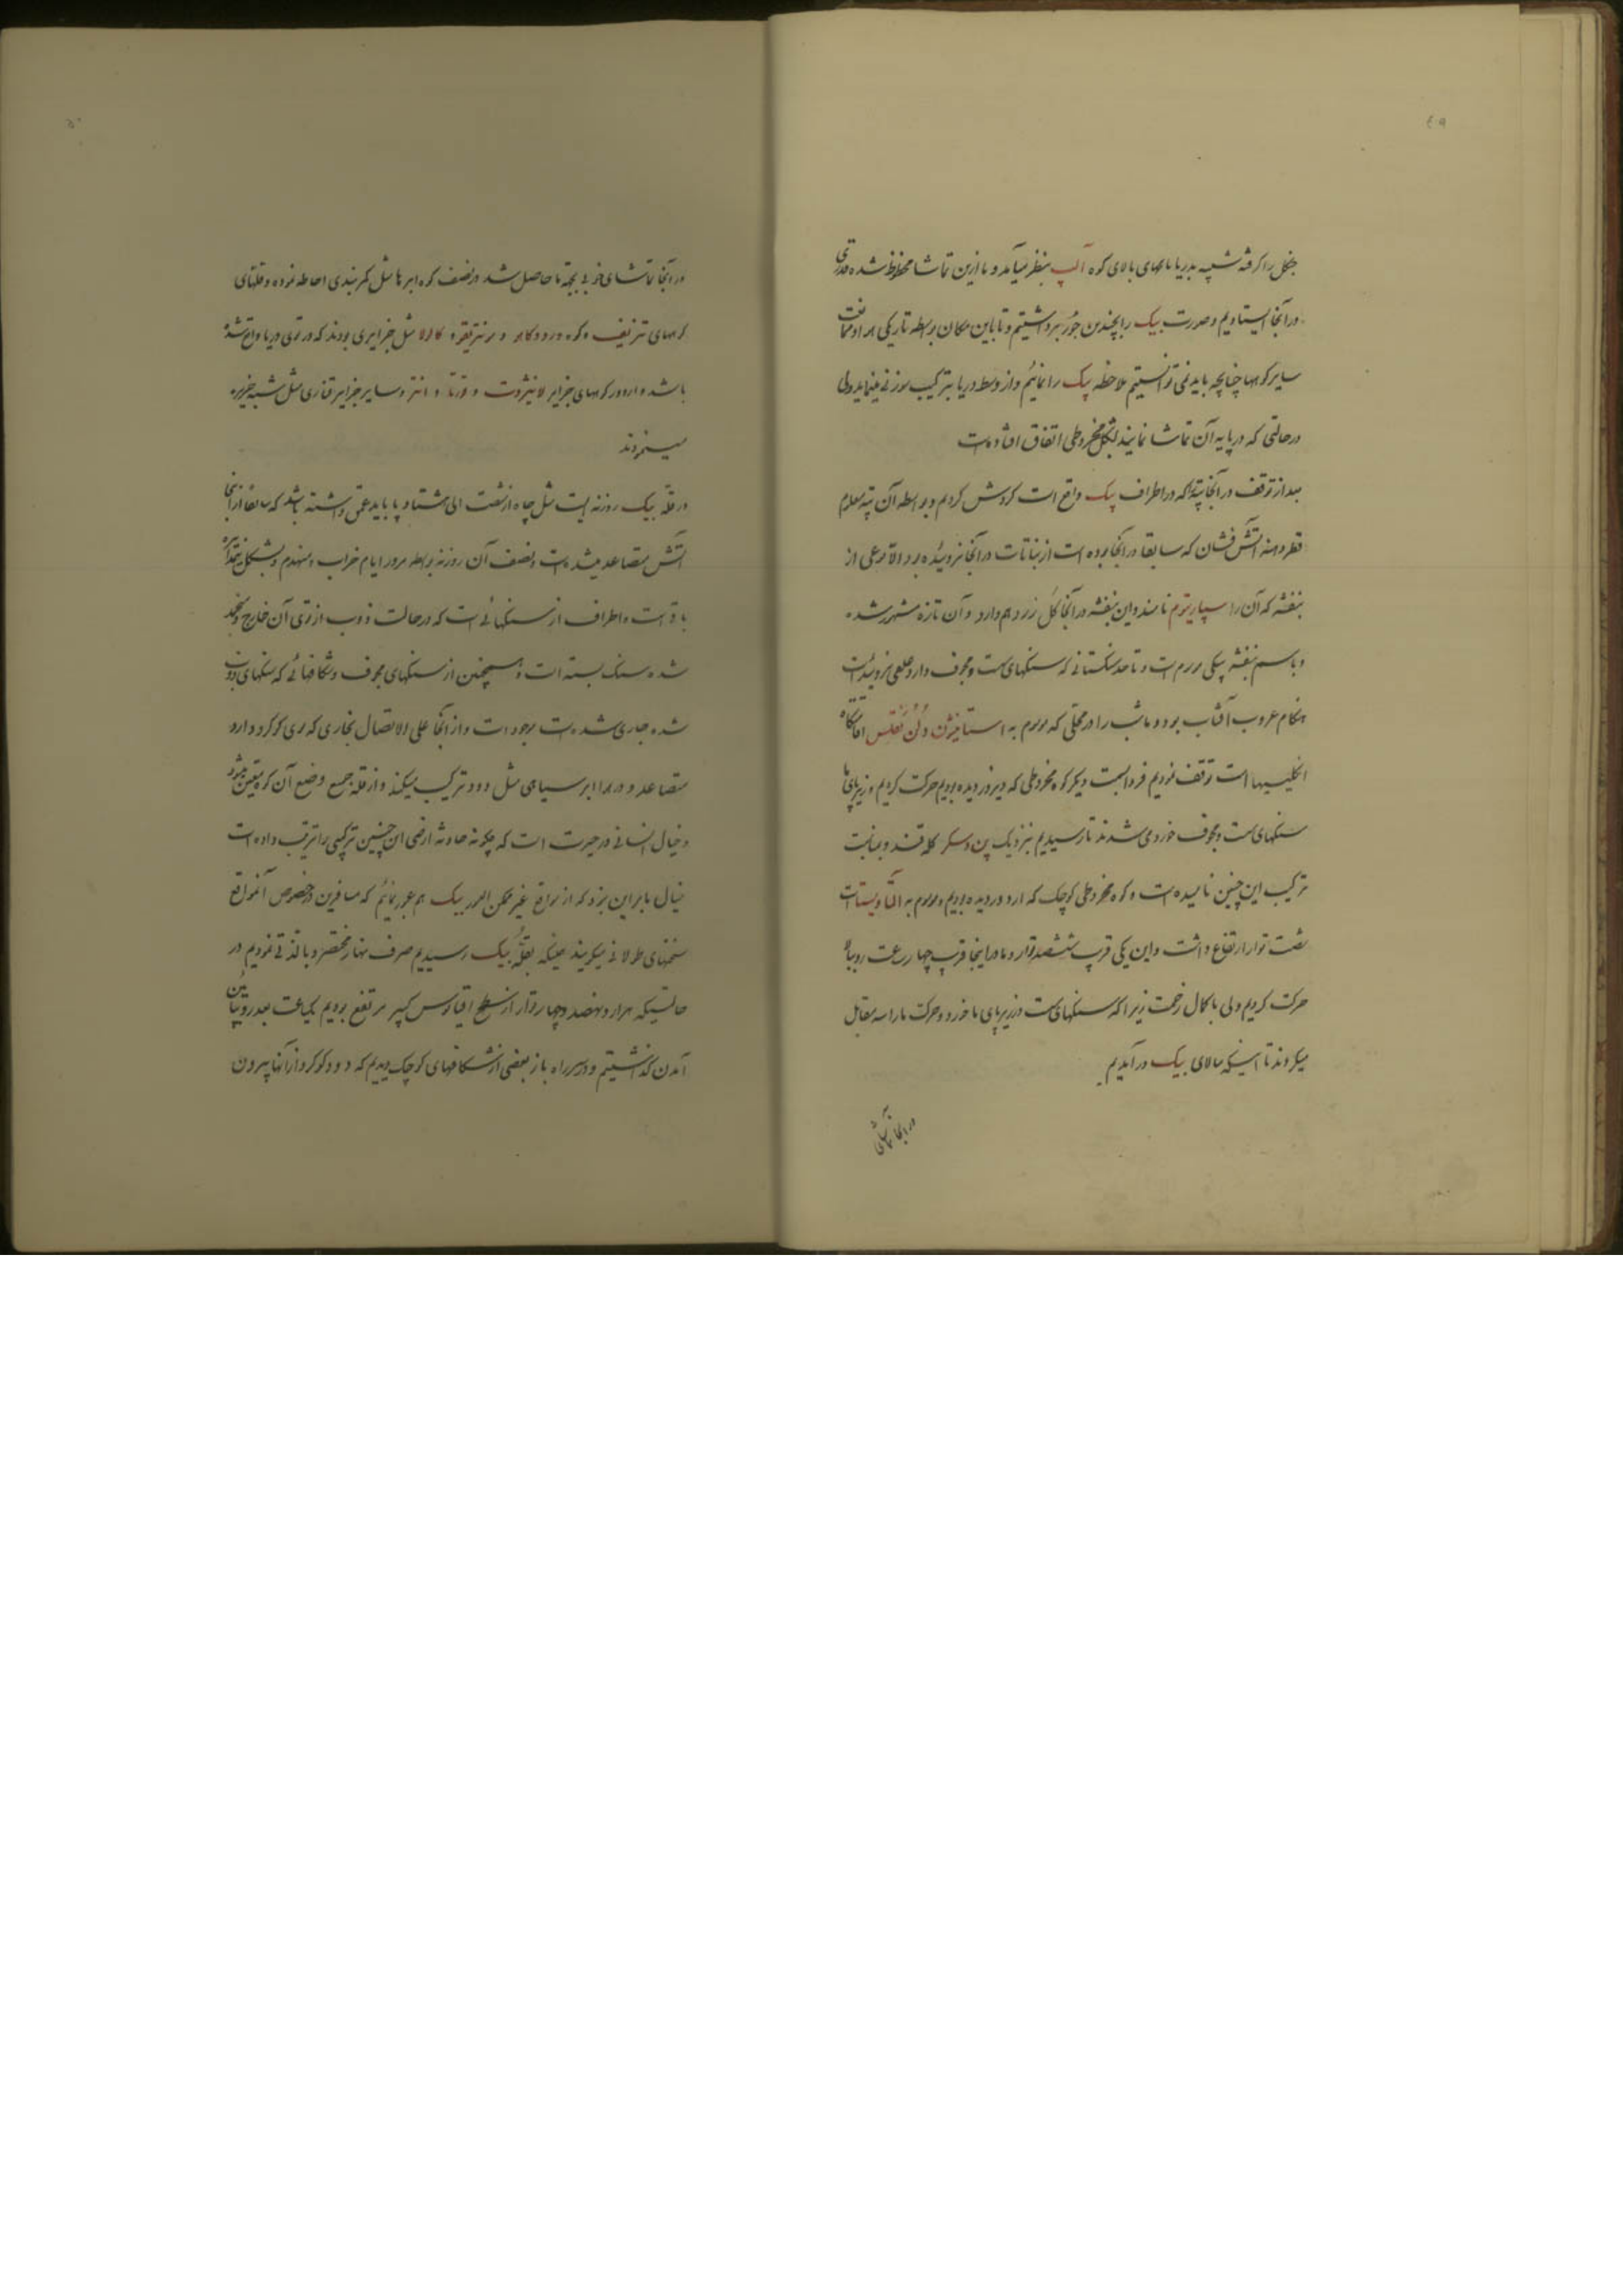 ۴۹
جنگل را گرفته شبیه بدریا یا مهای بالای کوه آلپ بنظر میآمد و ما ازین تماشا محظوظ شده قدری
در آنجا ایستادیم و صورت پیک را بچندین جور برداشتیم و تا باین مکان بواسطه تاریکی هوا و ممانعت
سایر کوهها چنانچه باید نمی توانستیم ملاحظه پیک را نمائیم و از وسط دریا بترکیب سوزنی مینماید ولی
در حالتی که در پایه آن تماشا نمایند بشکل مخروطی اتفاق افتاده است
بعد از توقف در آنجا پته که در اطراف پیک واقع است گردش کردیم و بواسطه آن پته معلوم
قطر دهنه آتش فشان که سابقا در آنجا بوده است از نباتات در آنجا نروئیده بود الا نوعی از
بنفشه که آن را سپارتیوم نامند و این بنفشه در آنجا گل زرد هم دارد و آن تازه مشهور شده
و باسم بنفشه پیکی موسوم است و تا حد سنگستانی که سنگهای سست و مجوف دارد علفی نروئیده است
هنگام غروب آفتاب بود و ما شب را در محلی که موسوم به استانیژن دلن نقلس اقامتگاه
انگلیسیها است توقف نمودیم فردا بسمت دیگر کوه مخروطی که دیروز دیده بودیم حرکت کردیم و زیر پای ما
سنگهای سست و مجوف خورد می شدند تا رسیدیم نزدیک پن دسکر کله قند و بمناسبت
ترکیب این چنین نامیده است و کوه مخروطی کوچک که از دور دیده بودیم و موسوم به التاویستات
شصت تواز ارتفاع داشت و این یکی قریب ششصد تواز و ما در اینجا قریب چهار ساعت رو ببالا
حرکت کردیم ولی با کمال زحمت زیرا که سنگهای سست در زیر پای ما خورد و حرکت ما را سه مقابل
میکردند تا اینکه ببالای پیک در آمدیم
در آنجا تماشای
۵۰
در آنجا تماشای خوبی بجهة ما حاصل شد در نصف کوه ابرها مثل کمربندی احاطه نموده و قلهای
کوههای تنریف و کوه ورودکامو و منتریقو و کالدا مثل جزایری بودند که در توی دریا واقع شده
باشد و از دور کوههای جزایر لانیژروت و فورتا و انتو و سایر جزایر قناری مثل شبه جزیره
مینمودند
در قله پیک روزنه ایست مثل چاه از شصت الی هشتاد پا باید عمق داشته باشد که سابقا از آنجا
آتش متصاعد میشده است و نصف آن روزنه بواسطه مرور ایام خراب و منهدم و بشکل
باقی است و اطراف از سنگهائی است که در حالت ذوب از توی آن خارج و منجمد
شده سنگ بسته است و همچنین از سنگهای مجوف و شکافهائی که سنگهای ذوب
شده جاری شده است موجود است و از آنجا علی الاتصال بخاری که بوی گوگرد دارد
متصاعد و در هوا ابر سیاهی مثل دود ترکیب میکند و از قله جمیع وضع آن کوه متعین میشود
و خیال انسانی در حیرت است که چگونه حادثه ارضی این چنین ترکیبی را ترتیب داده است
خیال ما بر این بود که از مواقع غیر ممکن المرور پیک هم عبور نمائیم که مسافرین در خصوص آنمواقع
سخنهای طولانی میگویند همینکه بقله پیک رسیدیم صرف نهار مختصر و با لذتی نمودیم در
حالتیکه هزار و نهصد و چهار تواز از سطح اقیانوس کبیر مرتفع بودیم یکساعت بعد رو بپائین
آمدن گذاشتیم و در سر راه باز بعضی از شکافهای کوچک دیدیم که دود گوگرد از آنها بیرون